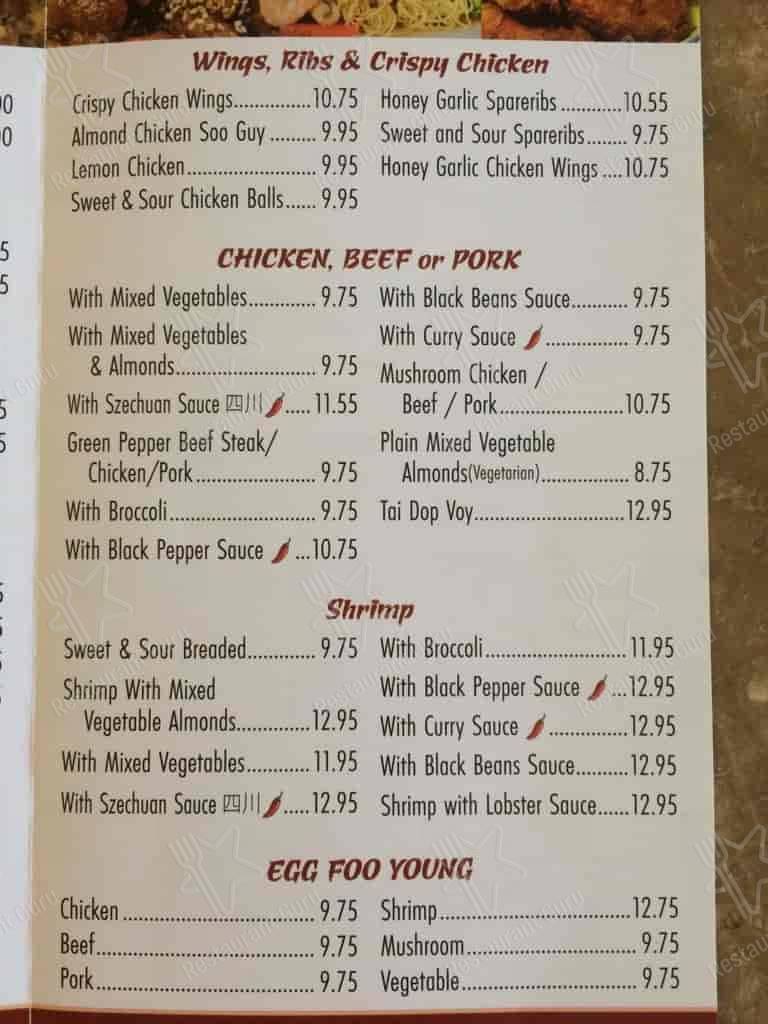 Wings, Ribs & Crispy Chicken
Crispy Chicken Wings...............10.75
Almond Chicken Soo Guy ......... 9.95
Lemon Chicken......................... 9.95
Sweet & Sour Chicken Balls...... 9.95
Honey Garlic Spareribs ............10.55
Sweet and Sour Spareribs........ 9.75
Honey Garlic Chicken Wings ....10.75
CHICKEN, BEEF or PORK
With Mixed Vegetables............. 9.75
With Mixed Vegetables
& Almonds........................... 9.75
With Szechuan Sauce 四川 ..... 11.55
Green Pepper Beef Steak/
Chicken/Pork ....................... 9.75
With Broccoli............................ 9.75
With Black Pepper Sauce ...10.75
With Black Beans Sauce........... 9.75
With Curry Sauce ................ 9.75
Mushroom Chicken /
Beef / Pork........................10.75
Plain Mixed Vegetable
Almonds(Vegetarian)................. 8.75
Tai Dop Voy.............................12.95
Shrimp
Sweet & Sour Breaded............. 9.75
Shrimp With Mixed
Vegetable Almonds..............12.95
With Mixed Vegetables............ 11.95
With Szechuan Sauce 四川 .....12.95
With Broccoli........................... 11.95
With Black Pepper Sauce ...12.95
With Curry Sauce ...............12.95
With Black Beans Sauce..........12.95
Shrimp with Lobster Sauce......12.95
EGG FOO YOUNG
Chicken ..................................... 9.75
Beef.......................................... 9.75
Pork.......................................... 9.75
Shrimp.....................................12.75
Mushroom................................. 9.75
Vegetable.................................. 9.75
Restaurant Guru